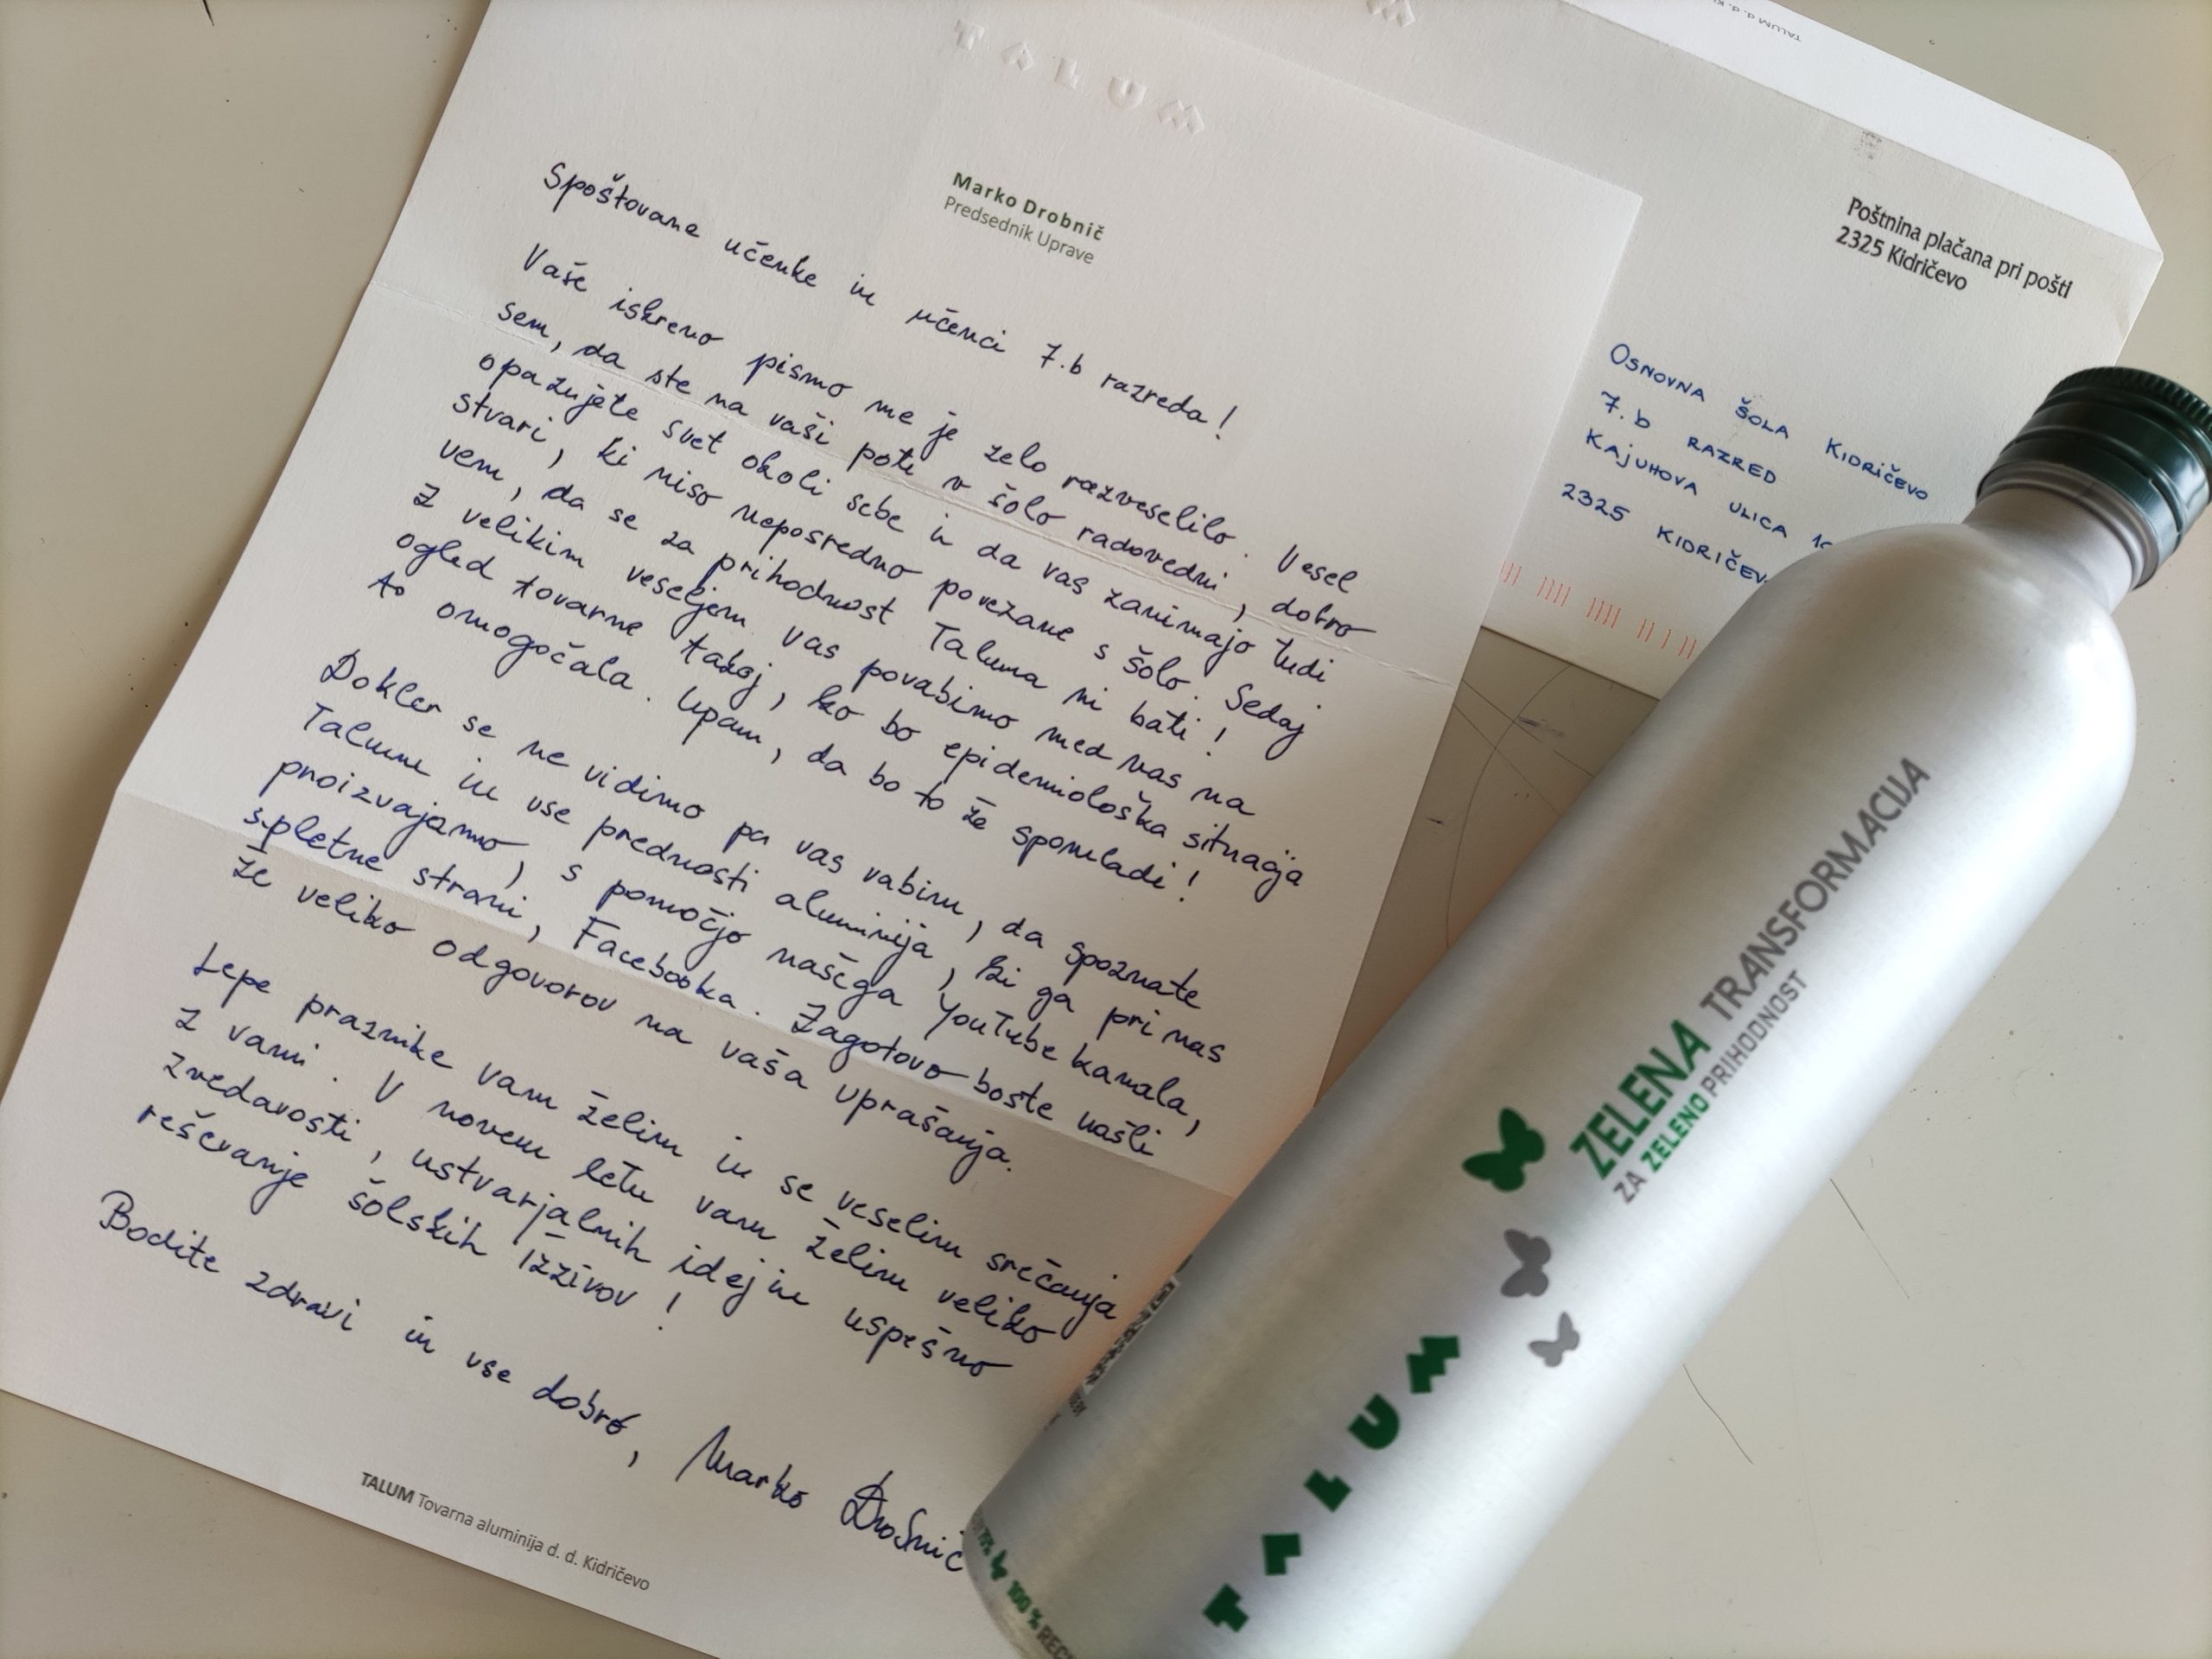 TALUM
Marko Drobnič
Predsednik Uprave
Spoštovane učenke in učenci 7.b razreda!
Vaše iskreno pismo me je zelo razveselilo. Vesel
sem, da ste na vaši poti v šolo radovedni, dobro
opazujete svet okoli sebe in da vas zanimajo tudi
stvari, ki niso neposredno povezane s šolo. Sedaj
vem, da se za prihodnost Taluma ni bati!
Z velikim veseljem vas povabimo med nas na
ogled tovarne takoj, ko bo epidemiološka situacija
to omogočala. Upam, da bo to že spomladi!
Dokler se ne vidimo pa vas vabim, da spoznate
Talum in vse prednosti aluminija, ki ga pri nas
proizvajamo, s pomočjo našega YouTube kanala,
spletne strani, Facebooka. Zagotovo boste našli
že veliko odgovorov na vaša vprašanja.
Lepe praznike vam želim in se veselim srečanja
z vami. V novem letu vam želim veliko
zvedavosti, ustvarjalnih idej in uspešno
reševanje šolskih izzivov!
Bodite zdravi in vse dobro, Marko Drobnič
TALUM Tovarna aluminija d. d. Kidričevo
TALUM d.d.
Poštnina plačana pri pošti
2325 Kidričevo
OSNOVNA ŠOLA KIDRIČEVO
7.b RAZRED
KAJUHOVA ULICA
2325 KIDRIČEV
ZELENA TRANSFORMACIJA
ZA ZELENO PRIHODNOST
TALUM
100 % REC